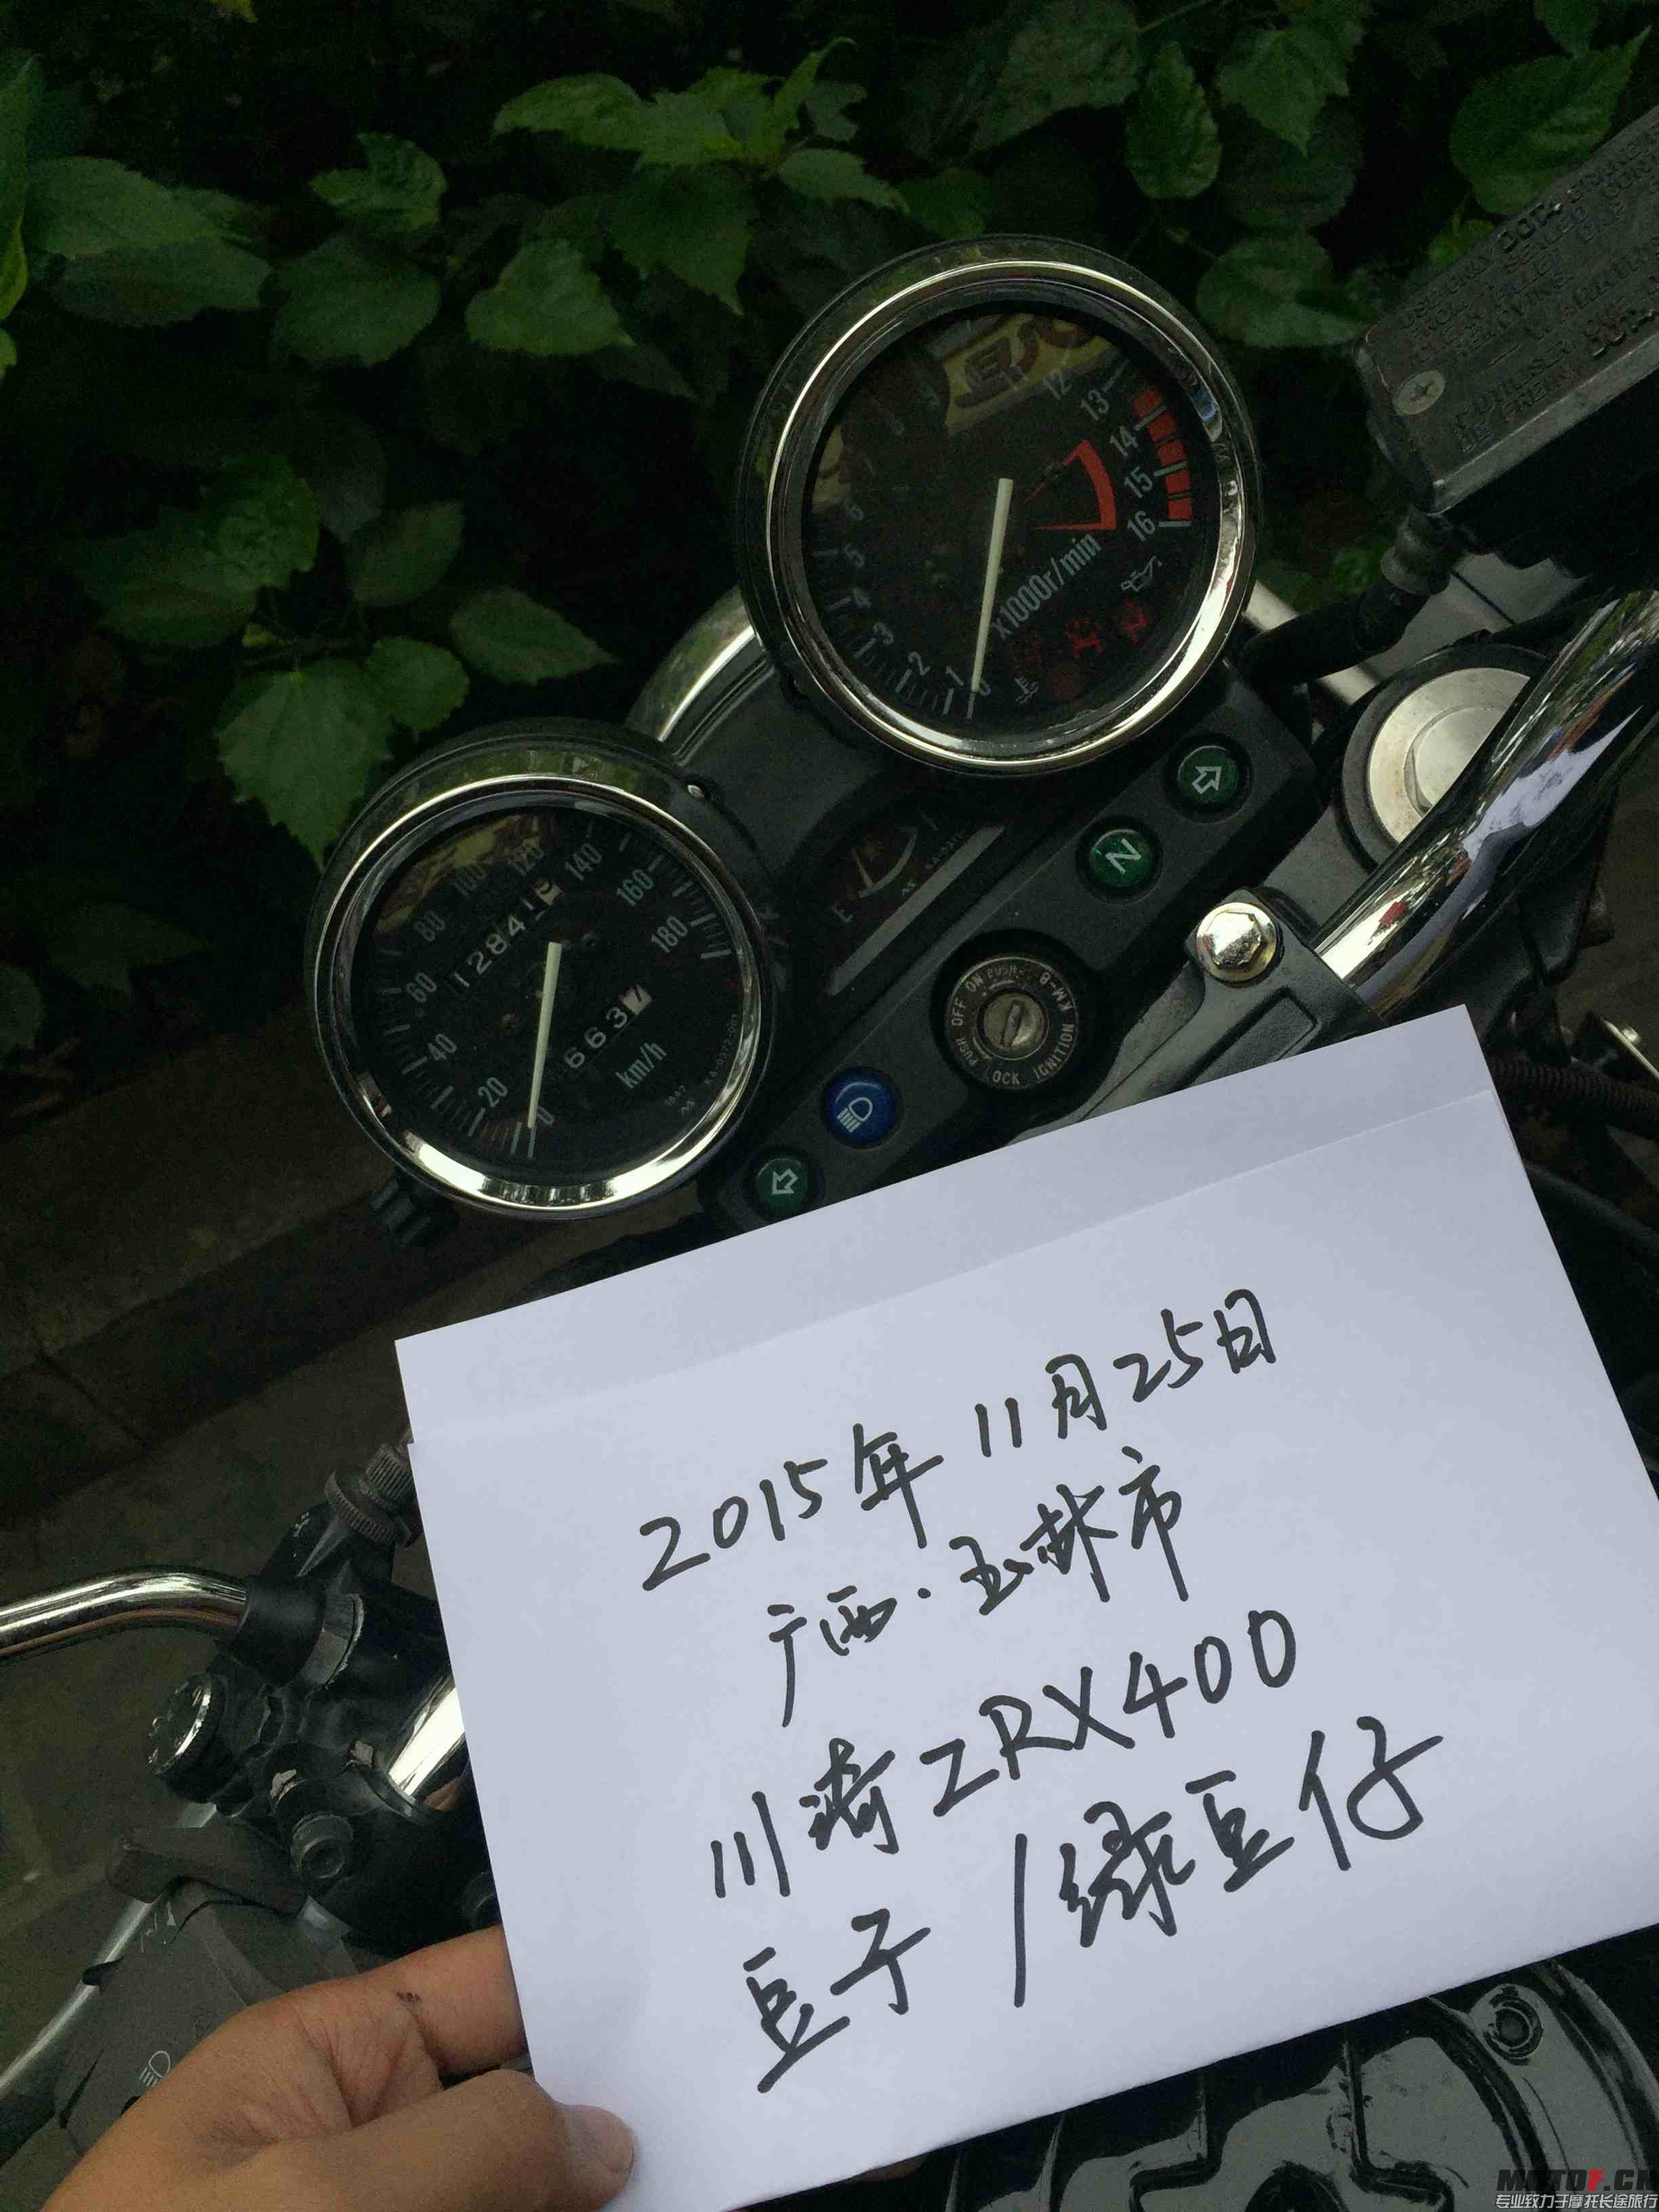 12
13
14
15
16
6
5
4
3
2
1
0
x1000r/min
100
120
140
160
180
80
60
40
20
0
12841
6637
km/h
E
N
ON PUSH
OFF
PUSH LOCK IGNITION
2015年11月25日
广西·玉林市
川崎ZRX400
豆子/绿豆仔
MOTOF.CN
专业致力于摩托长途旅行